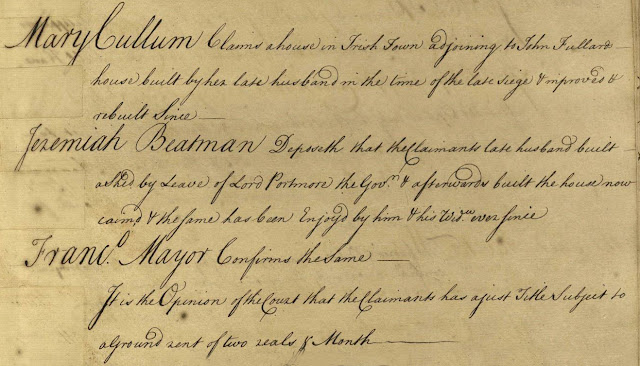 Mary Cullum Claims a house in Irish Town adjoining to John Fullard
house built by her late husband in the time of the late siege & improved &
rebuilt Since —
Jeremiah Beatman Deposeth that the Claimants late husband built
a shed by Leave of Lord Portmore the Govr. & afterwards built the house now
caimd & the same has been Enjoyd by him & his Widw. ever since
Franco. Mayor Confirms the same —
It is the Opinion of the Court that the Claimants has a just Title Subject to
a Ground rent of two reals ⅌ Month —